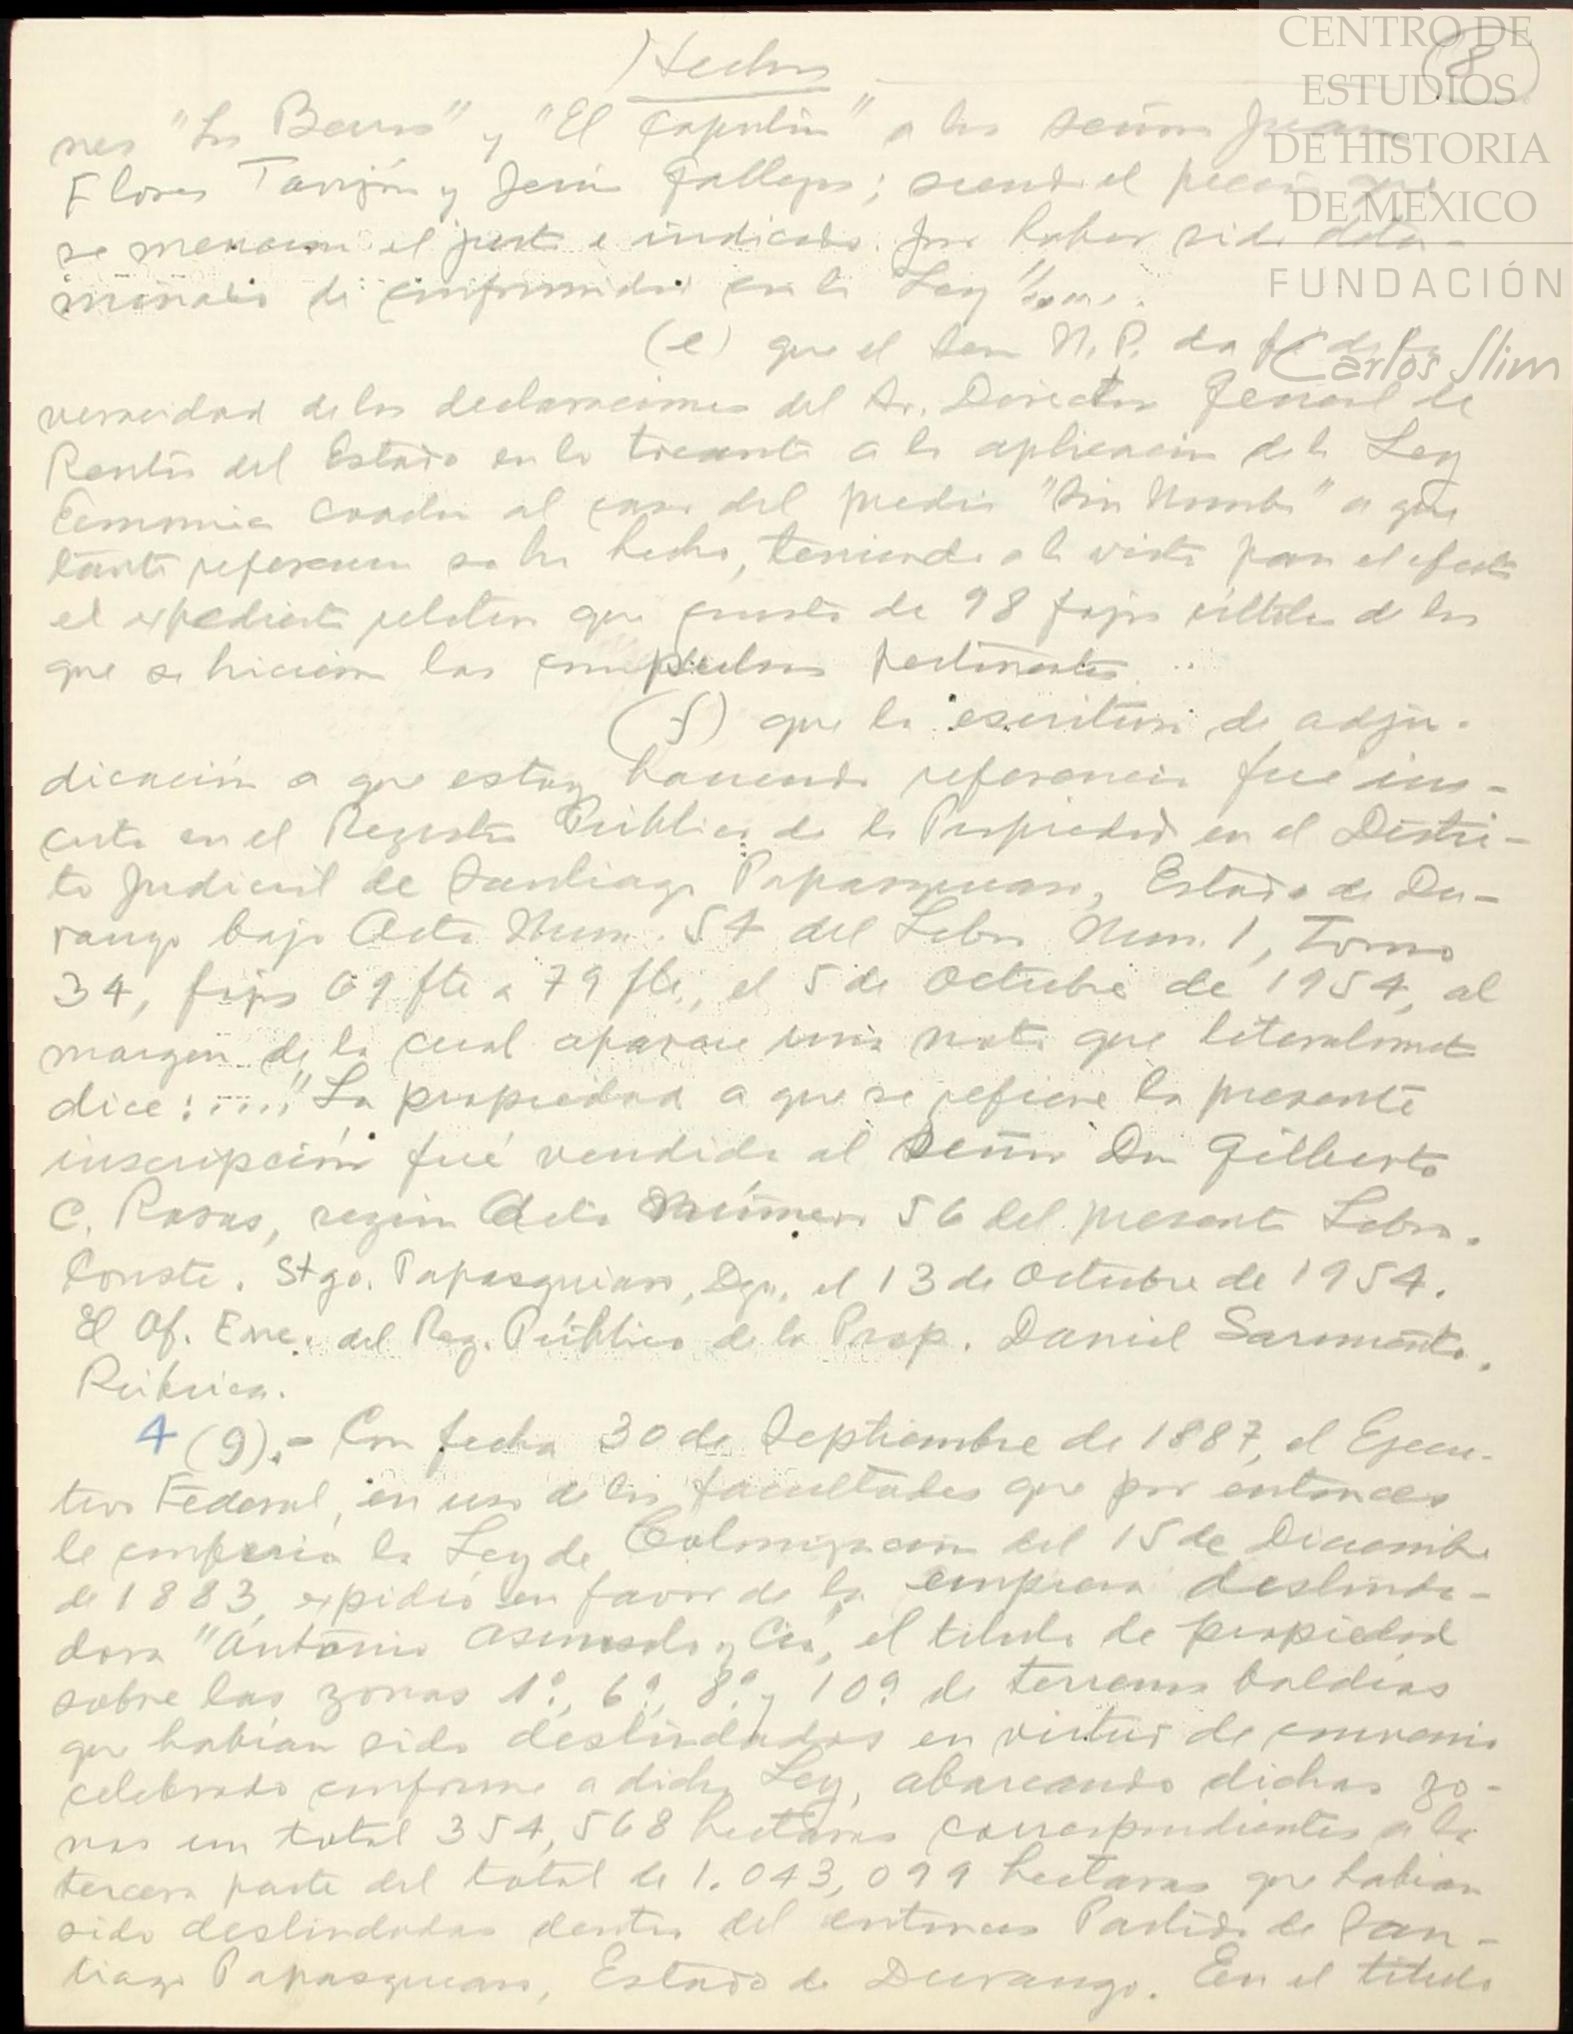 Hechos
8
CENTRO DE
ESTUDIOS
DE HISTORIA
DE MEXICO
FUNDACIÓN
Carlos Slim
nes "Los Berros" y "El Capulín" a los señores Juan
Flores Tarijón y Jesús Gallegos; siendo el precio que
se menciona el justo e indicado por haber sido deter-
minado de conformidad con la Ley"....
(e) que el señor N. P. da fé de la
veracidad de las declaraciones del Sr. Director General de
Rentas del Estado en lo tocante a la aplicación de la Ley
Economica Coactiva al caso del predio "Sin Nombre" a que
tanta referencia se ha hecho, teniendo a la vista para el efecto
el expediente relativo que consta de 98 fojas utiles de las
que se hicieron las compulsas pertinentes..
(f) que la escritura de adju-
dicación a que estoy haciendo referencia fué ins-
crita en el Registro Público de la Propiedad en el Distri-
to Judicial de Santiago Papasquiaro, Estado de Du-
rango bajo Acta Num. 54 del Libro Num. 1, Tomo
34, fojas 69 fte a 79 fte, el 5 de Octubre de 1954, al
margen de la cual aparece una nota que literalmente
dice:...."La propiedad a que se refiere la presente
inscripción fué vendida al señor Don Gilberto
C. Rosas, según Acta Número 56 del presente Libro.
Conste. Stgo. Papasquiaro, Dgo, el 13 de Octubre de 1954.
El Of. Enc. del Reg. Público de la Prop. Daniel Sarmiento.
Rúbrica.
4 (g).- Con fecha 30 de Septiembre de 1887, el Ejecu-
tivo Federal, en uso de las facultades que por entonces
le confería la Ley de Colonización del 15 de Diciembre
de 1883, expidió en favor de la empresa deslinda-
dora "Antonio Asunsolo y Cía", el título de propiedad
sobre las zonas 1ª, 6ª, 8ª y 10ª de terrenos baldíos
que habían sido deslindados en virtud de convenio
celebrado conforme a dicha Ley, abarcando dichas zo-
nas un total 354,568 hectáreas correspondientes a la
tercera parte del total de 1.043,099 hectáreas que habían
sido deslindadas dentro del entonces Partido de San-
tiago Papasquiaro, Estado de Durango. En el título